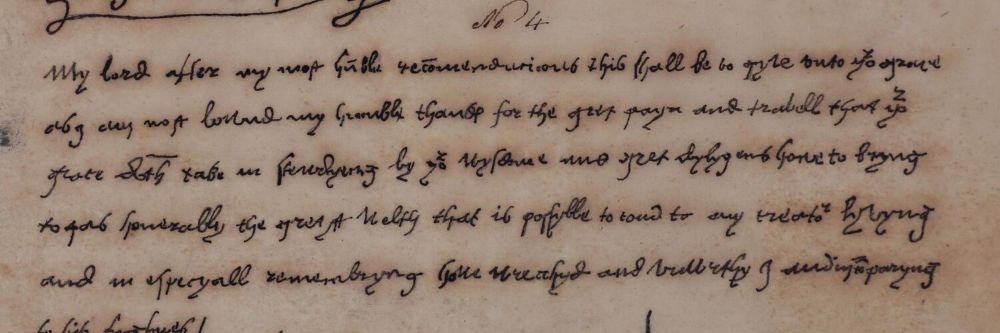 No 4
My lord after my most hūble recōmendacions this shall be to gyve vnto yor grace
as I am most bownd my humble thanks for the gret payn and travell that yor
grace doth take in steudyeng by yor wysdome and gret dylygens howe to bryng
to pas honerably the gretyst welth that is possyble to com to any creator lyvyng
and in especyall remembryng howe wrecchyd and vnwrthy I am in cōparyng
to his hyghnes